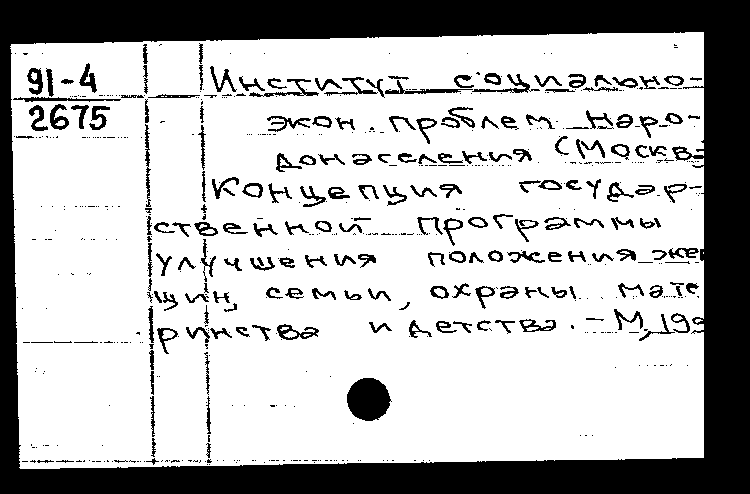 91-4
2675
Институт социально-
экон. проблем наро-
донаселения (Москва
Концепция государ-
ственной программы
улучшения положения жен
щин, семьи, охраны мате
ринства и детства. - М,